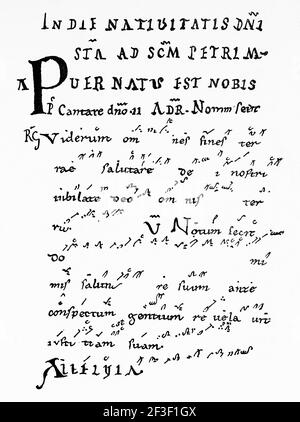 IN DIE NATIVITATIS DÑI
STA AD SCM PETRUM
PUER NATUS EST NOBIS
Cantare dño ADR. Notum
Viderunt om nes fines ter
rae salutare de i nostri
iubilate deo om nis ter
ra V Notum fecit
do mi
nus salut re suum ante
conspectum gentium re vela vit
iusti tiam suam
Alleluia
alamy
Image ID: 2F3F1GX
www.alamy.com